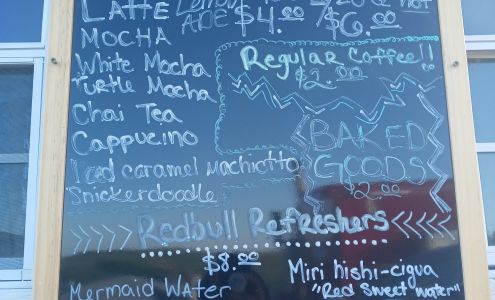 LATTE
LEMON ADE $4.00
/20oz Hot
$6.00
MOCHA
White Mocha
Turtle Mocha
Chai Tea
Cappucino
Iced caramel Machiotto
Snickerdoodle
Regular Coffee!!
$2.00
BAKED
GOODS
$2.00
>>>> Redbull Refreshers <<<<
$8.00
Mermaid Water
Miri hishi-cigua
"Red Sweet water"